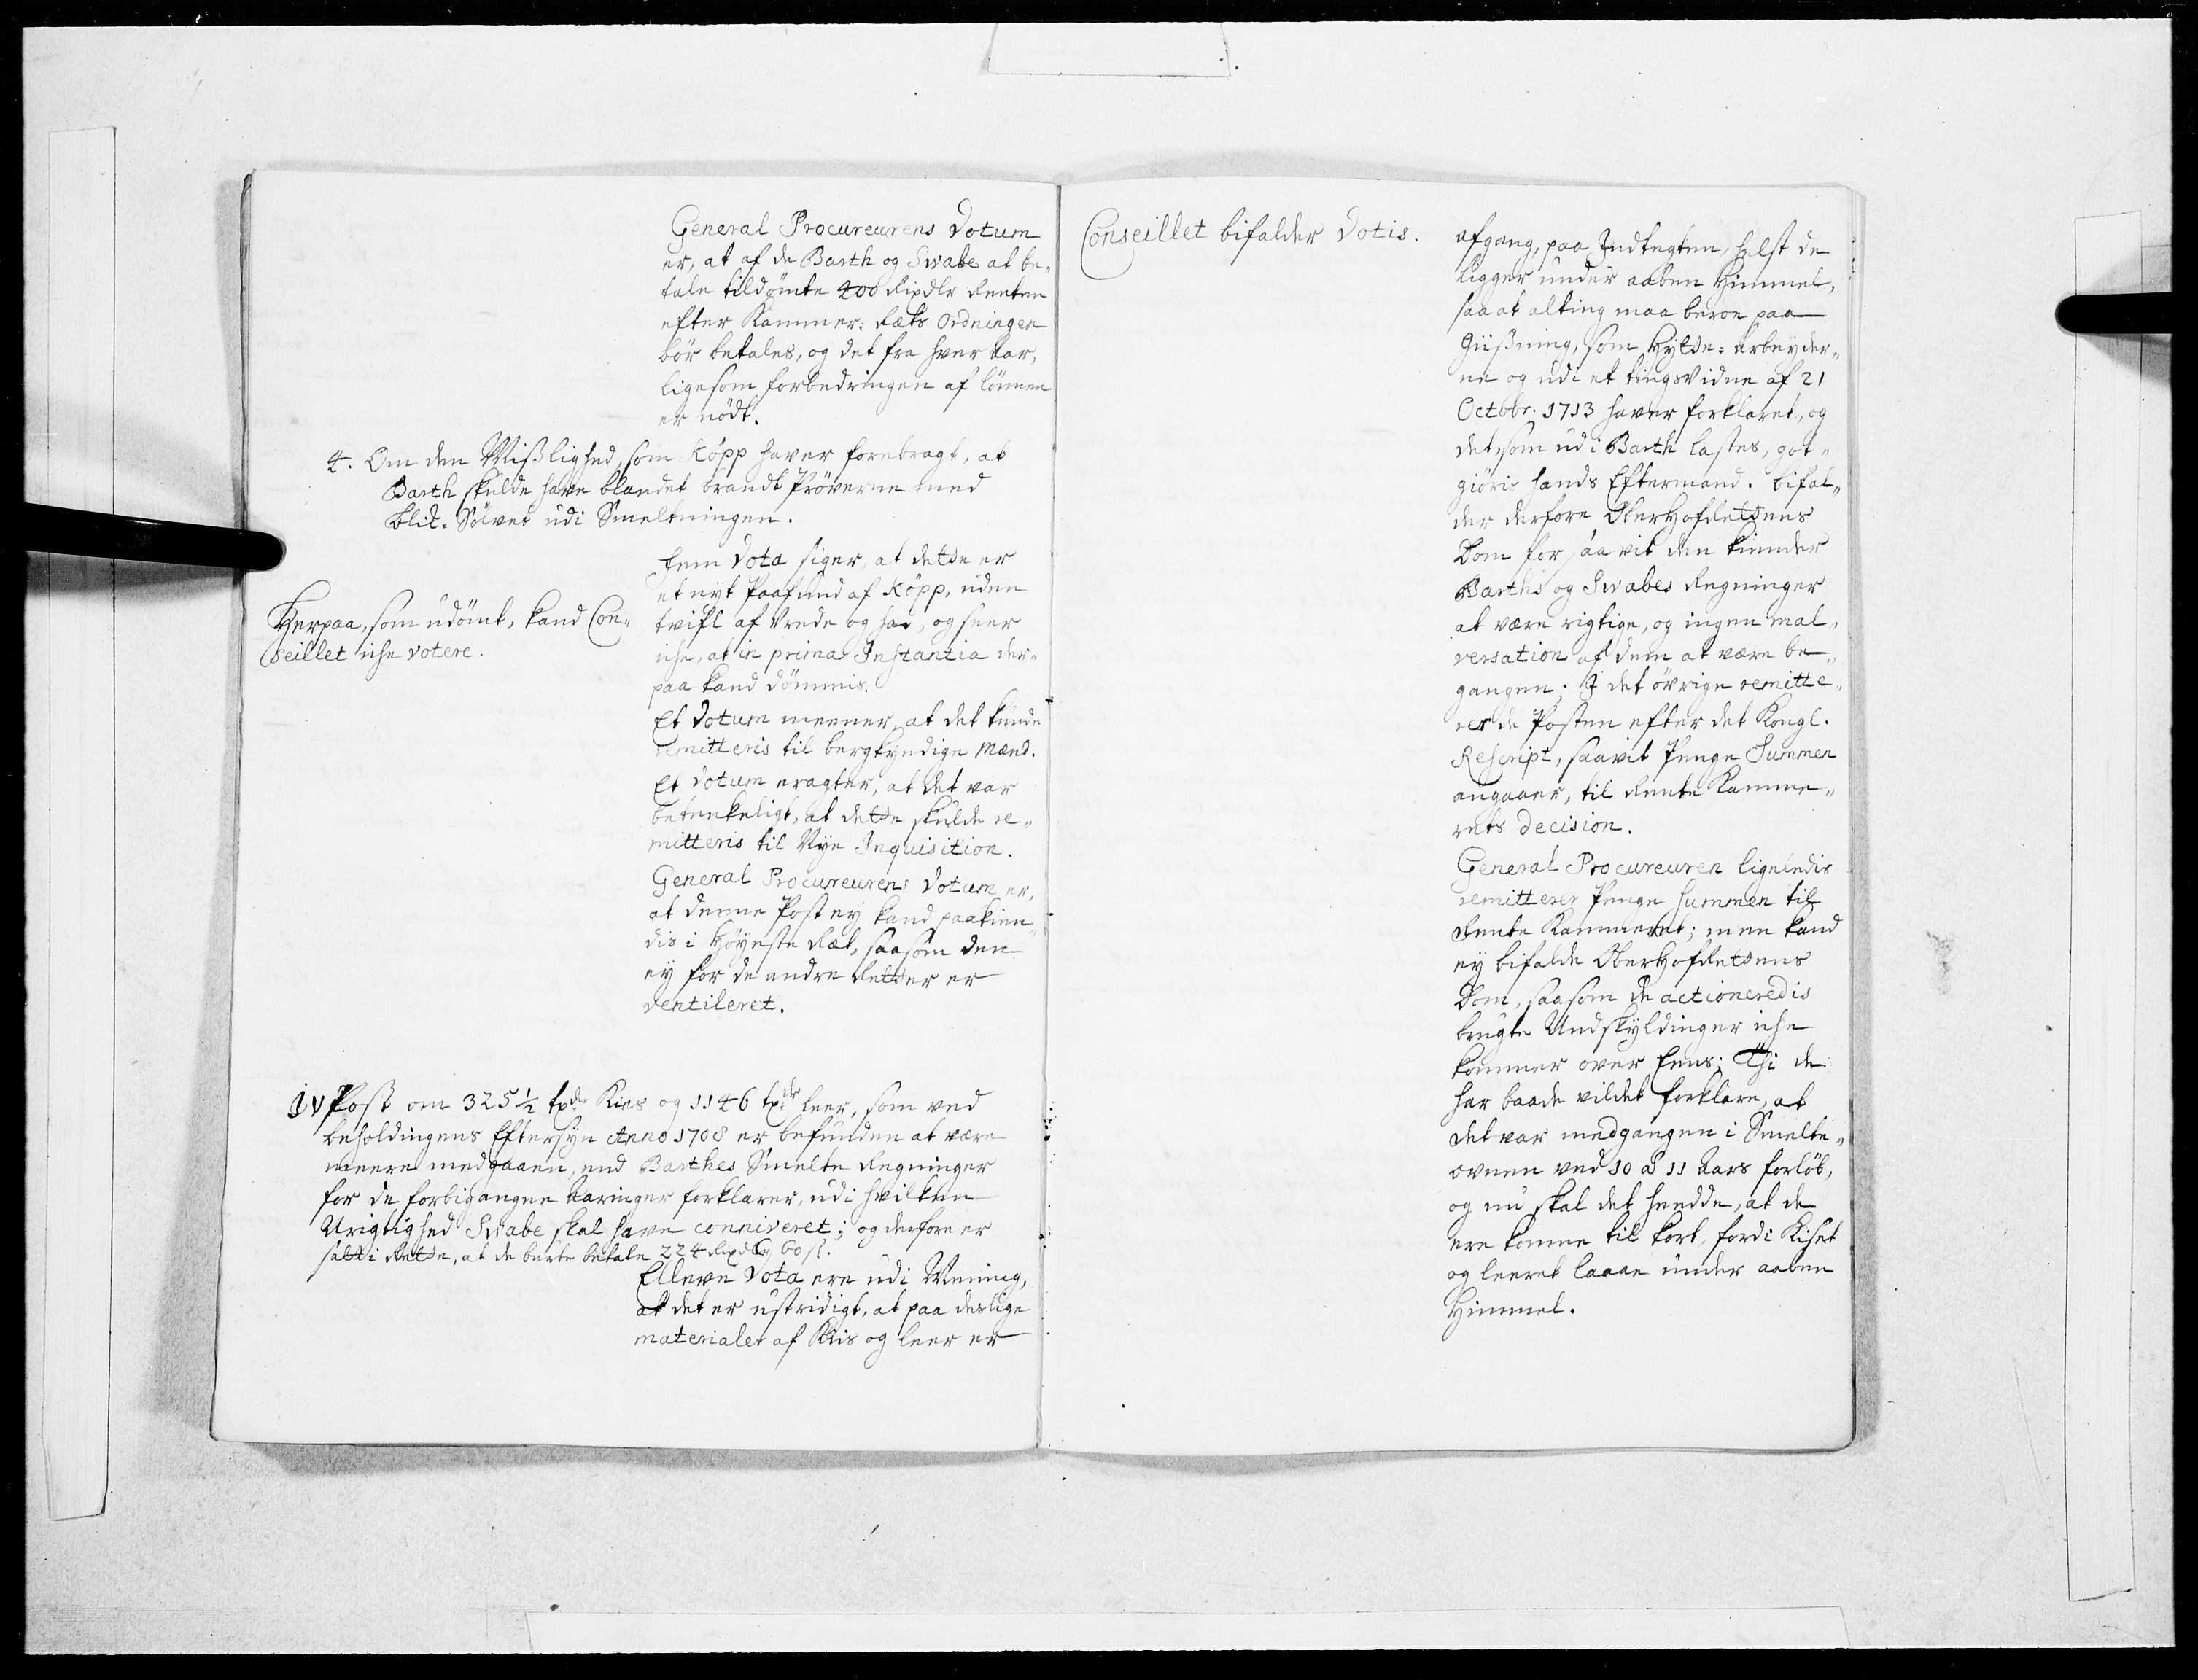 General Procureurens Votum
er, at af de Barth og Swabe at be-
tale tildömte 400 Rixdlr Renten
efter Kammer: Rets Ordningen
bör betales, og det fra hver Aar,
ligesom forbedringen af lönnen
er nödt.
4. Om den Mißlighed, som Köpp haver forebragt, at
Barth skulde have blandet brandt Pröverne med
Blick. Sölvet udi Smeltningen.
Fem Vota siger, at dette er
et nyt Paafund af Köpp, uden
tvifl af Vrede og had, og seer
iche, at in prima Instantia der-
paa kand dömmis.
Herpaa, som udömt, kand Con-
seillet iche votere.
Et Votum meener, at det kunde
remitteris til bergkyndige Mænd.
Et Votum eragter, at det var
betenkeligt, at dette skulde re-
mitteris til Nye Inquisition.
General Procureurens Votum er,
at denne Post ey kand paakien-
dis i Höyeste Ræt, saasom den
ey for de andre Retter er
ventileret.
IV Post om 325 1/2 tpdr Kies og 1146 tpdr leer, som ved
beholdingens Eftersyn Anno 1708 er befunden at være
meere medgaaen, end Barthes Smelte Regninger
for de forbigangne Aaringer forklarer, udi hvilken
Urigtighed Swabe skal have conniveret; og derfore er
satt i Rette, at de burte betale 224 Rixdlr 60 s.
Elleve Vota ere udi Mening,
at det er ustridigt, at paa deslige
materialer af Kiis og leer er
Conseillet bifalder Votis.
afgang, paa Indtegten, helst de
ligger under aaben Himmel,
saa at alting maa beroe paa
Giißning, som Hytte-arbeyder-
ne og udi et tingsvidne af 21
Octobr. 1713 haver forklaret, og
det, som udi Barth lastes, got-
giöris hands Eftermand. bifal-
der derfore OberHofRettens
Dom for saa vit den kiender
Barths og Swabes Regninger
at være rigtige, og ingen mal-
versation af dem at være be-
gangen; I det övrige remitte-
rer de Posten efter det Kongl.
Rescript, saavit Penge Summen
angaaer, til Rente Kamme-
rets decision.
General Procureuren ligeledis
remitterer Penge Summen til
Rente Kammeret; men kand
ey bifalde OberHofRettens
Dom, saasom de actioneredis
brugte Undskyldinger iche
kommer over Eens; Thi de
har baade vildet forklare, at
det var medgangen i Smelte-
ovnen ved 10 a 11 Aars forlöb,
og nu skal det heedde, at de
ere komne til kort, fordi Kiset
og leeret laaae under aaben
Himmel.